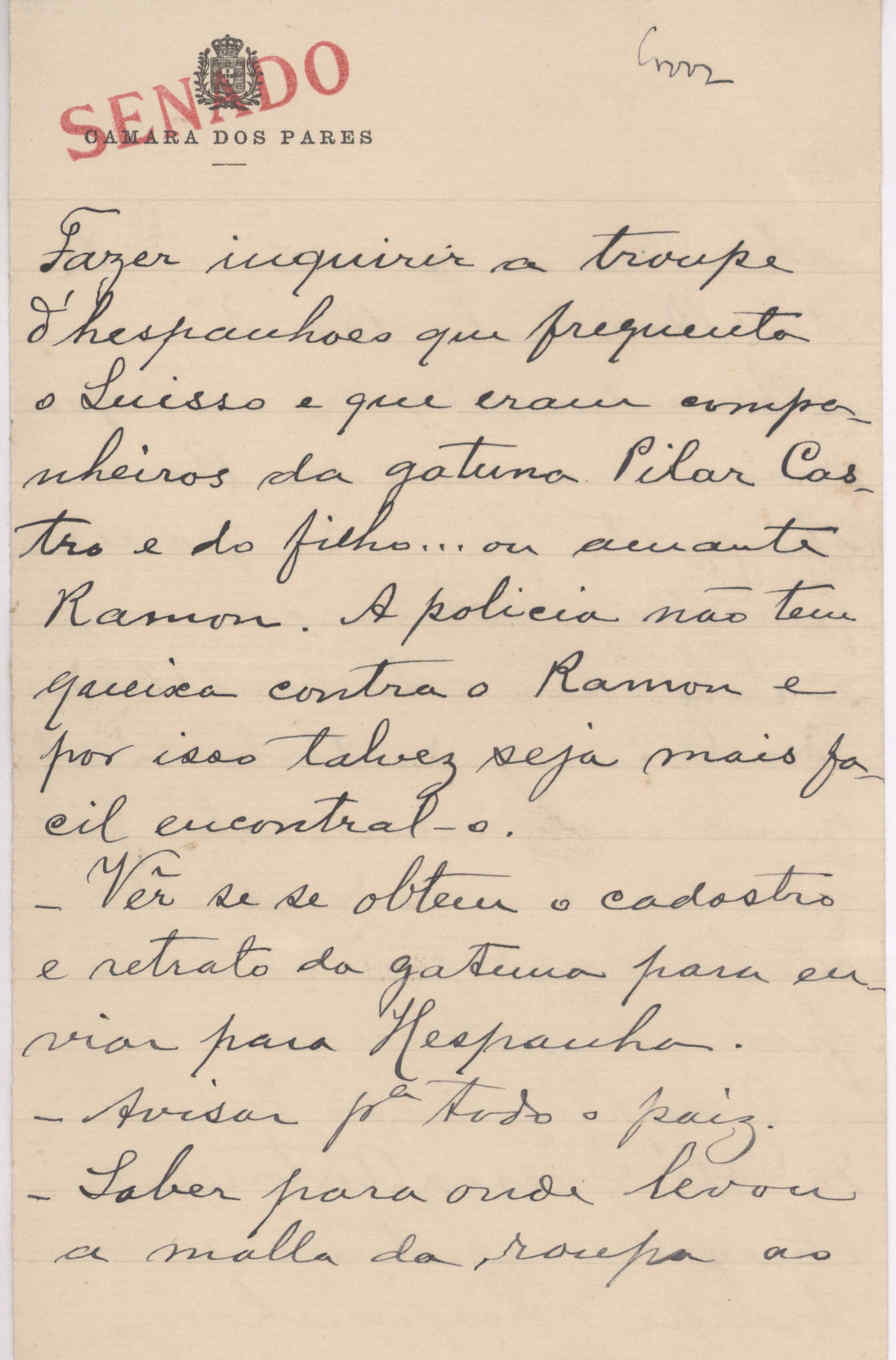 SENADO
CAMARA DOS PARES
Fazer inquirir a troupe
d'hespanhoes que frequenta
o Suisso e que eram compa-
nheiros da gatuna Pilar Cas-
tro e do filho... ou amante
Ramon. A policia não tem
queixa contra o Ramon e
por isso talvez seja mais fa-
cil encontral-o.
- Vêr se se obtem o cadastro
e retrato da gatuna para en-
viar para Hespanha.
- Avisar pª todo o paiz.
- Saber para onde levou
a malla da roupa ao